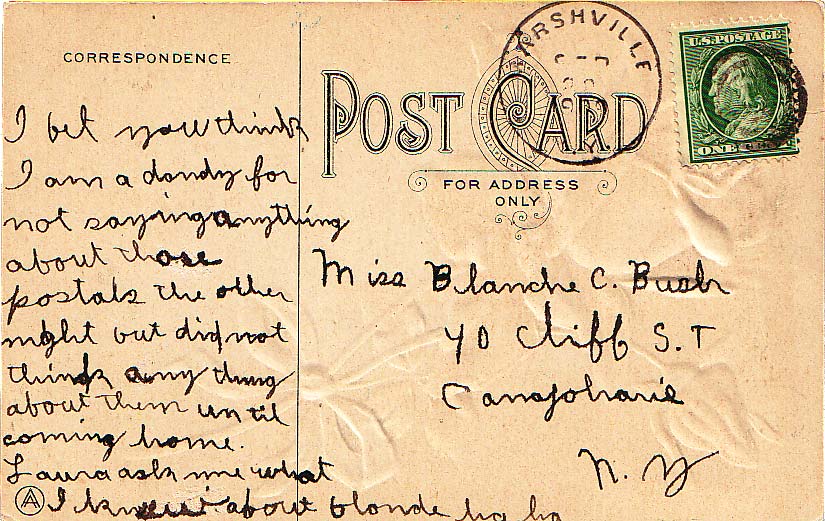 CORRESPONDENCE
I bet you think
I am a dandy for
not saying anything
about those
postals the other
night but did not
think any thing
about them until
coming home.
Laura ask me what
I knew about blonde ha ha
POST CARD
FOR ADDRESS
ONLY
ARSHVILLE
U.S. POSTAGE
ONE CENT
Miss Blanche C. Bush
40 Cliff S.T
Canajoharie
N. Y